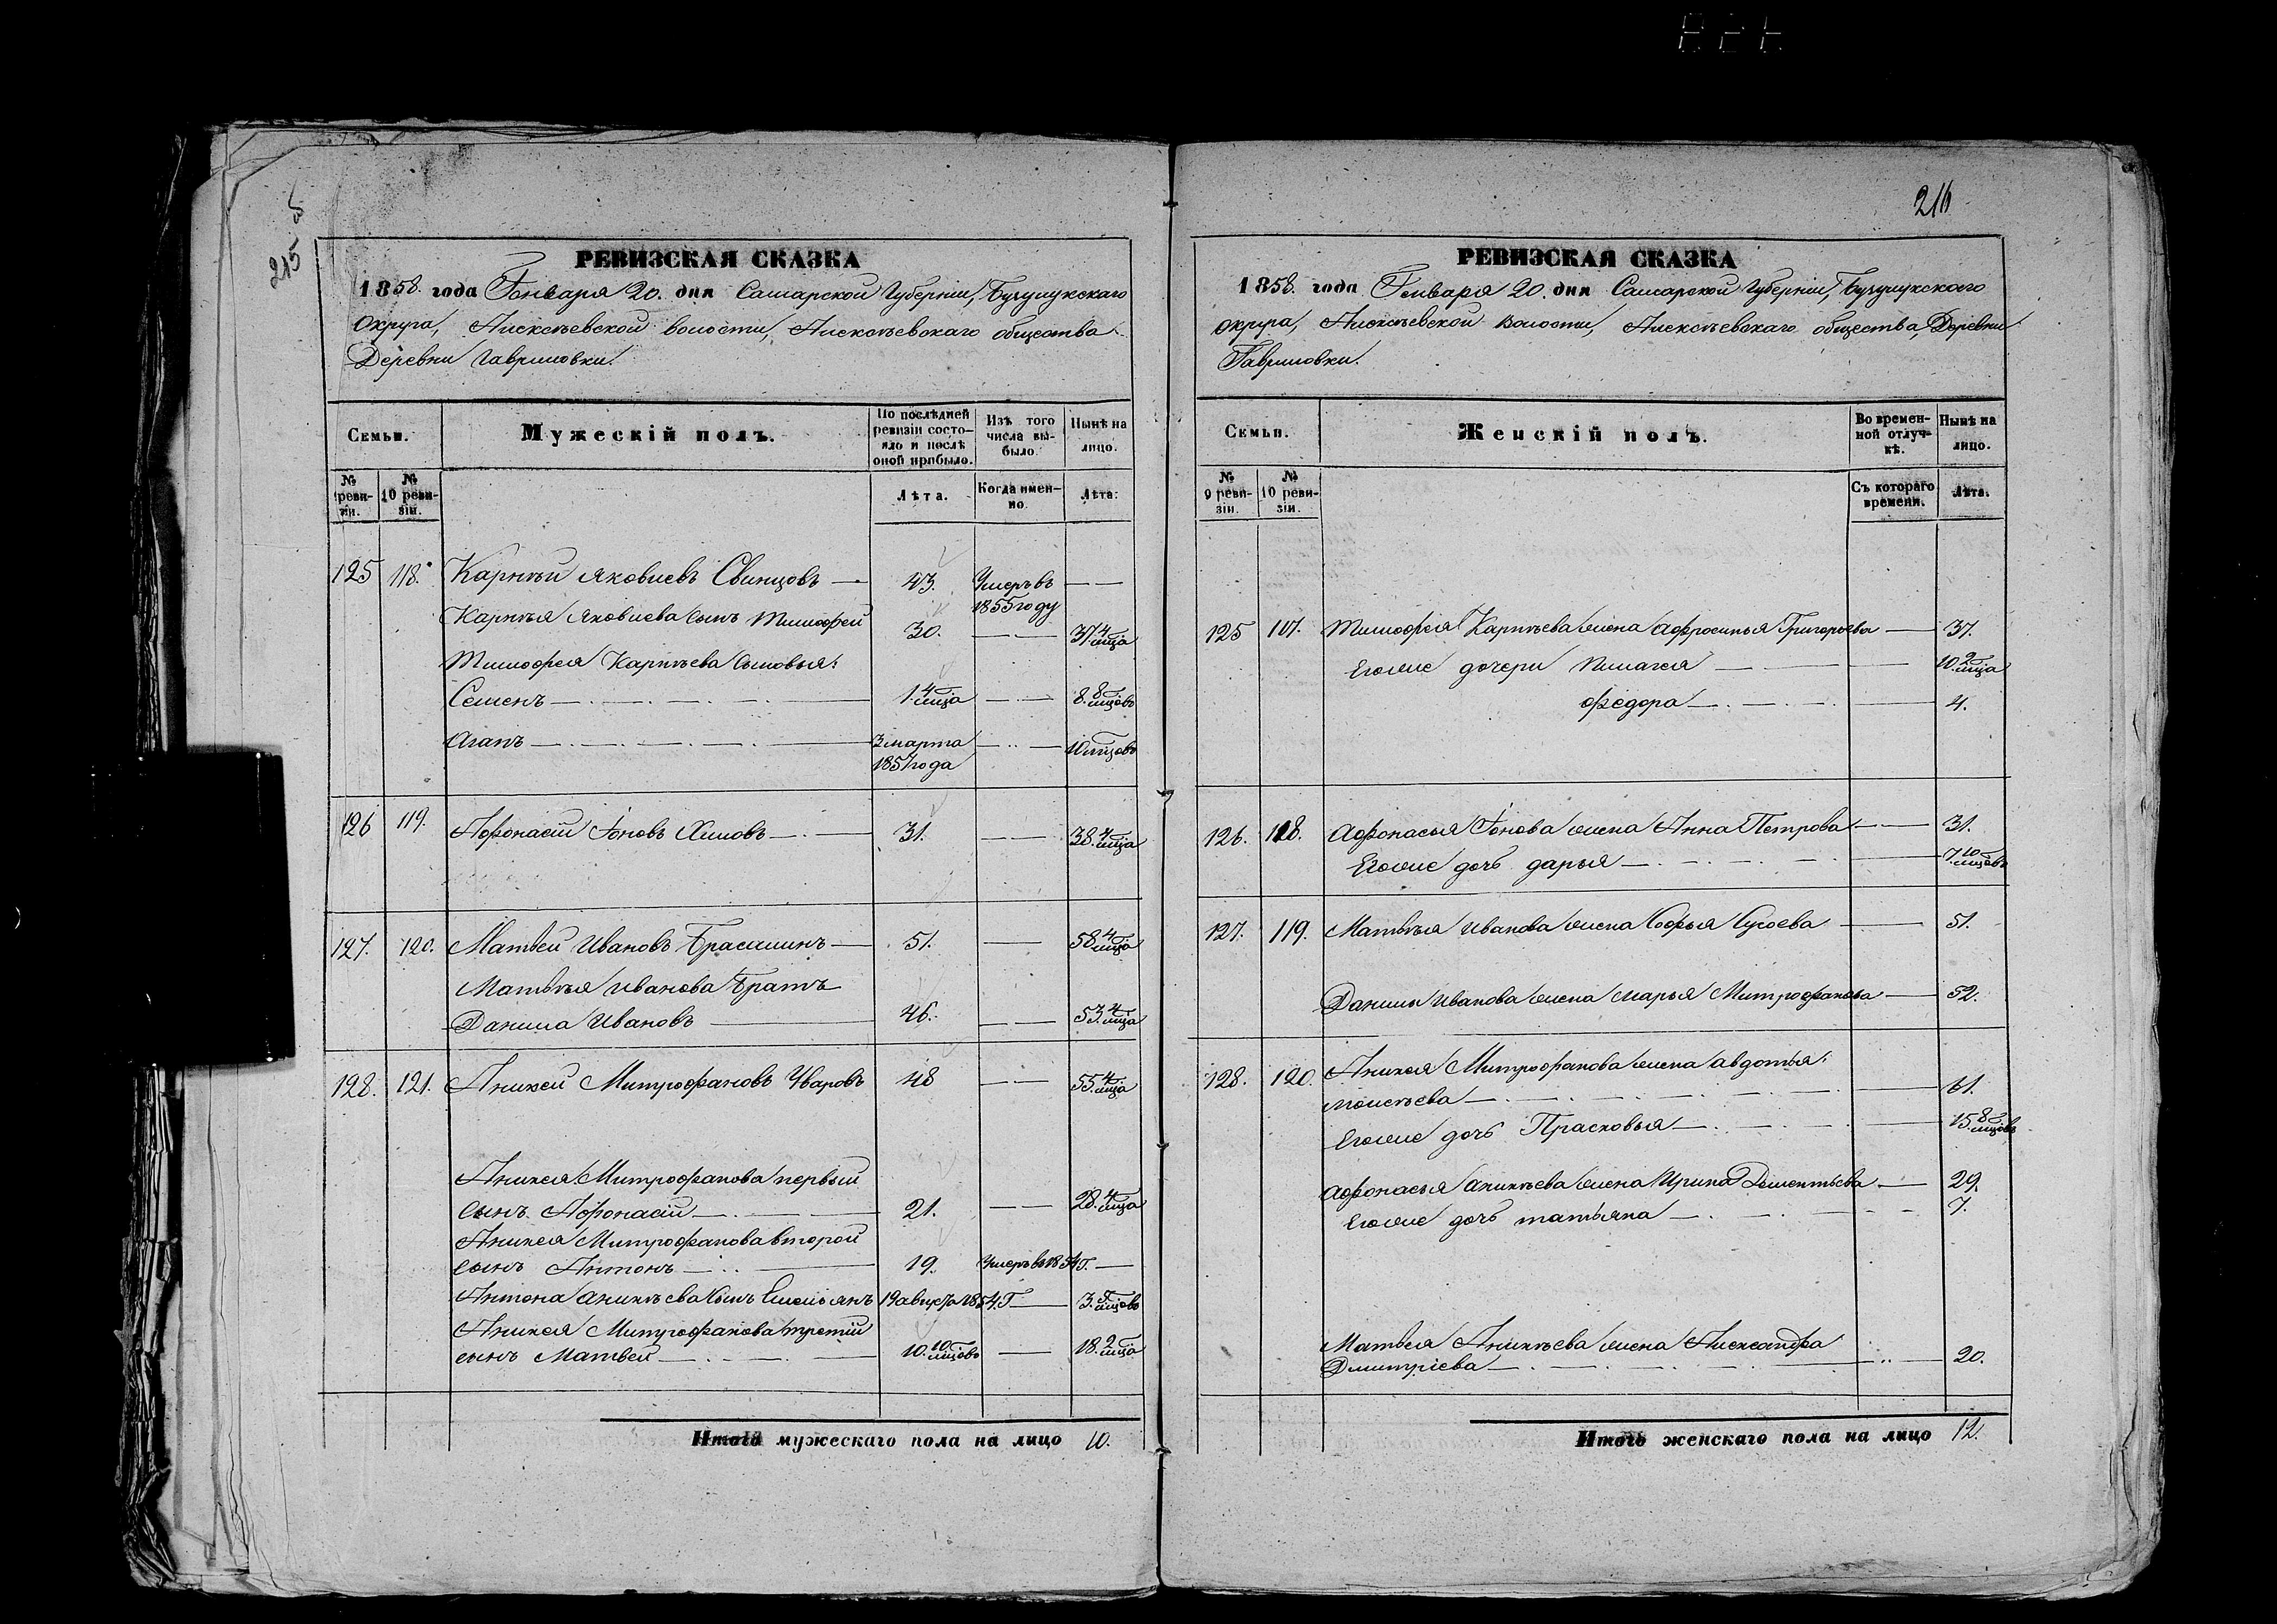 215
РЕВИЗСКАЯ СКАЗКА
1858. года Генваря 20. дня Самарской Губерніи, Бузулукскаго
Округа, Алексѣевской волости, Алексѣевскаго общества
Деревни Гавриловки.
Семьи.
Мужескій полъ.
По послѣдней ревизіи состояло и послѣ оной прибыло.
Изъ того числа выбыло.
Нынѣ на лицо.
№ 9 ревизіи.
№ 10 ревизіи.
Лѣта.
Когда именно.
Лѣта.
125 118. Карпѣй Яковлевъ Свинцовъ 43. Умеръ въ 1855 году
Карпѣя Яковлева сынъ Тимофей 30. 37. 4 мца
Тимофея Карпѣева сыновья:
Семенъ 1. 4 мца 8. 8 мцовъ
Агапъ 3 марта 1857 года 10 мцовъ
126 119. Афонасій Іоновъ Климовъ 31. 38. 4 мца
127. 120. Матвей Ивановъ 51. 58. 4 мца
Матвѣя Иванова Братъ
Данила Ивановъ 46. 53. 4 мца
128. 121. Аникей Митрофановъ Уваровъ 48 55. 4 мца
Аникея Митрофанова первый
сынъ Афонасій 21. 28. 4 мца
Аникея Митрофанова второй
сынъ Антонъ 19. Умеръ въ 1854 г.
Антона Аникѣева сынъ Емельянъ 19 августа 1854. г. 3. 5 мцовъ
Аникея Митрофанова третій
сынъ Матвей 10. 10 мцовъ 18. 2 мца
Итого мужескаго пола на лицо 10.
216
РЕВИЗСКАЯ СКАЗКА
1858. года Генваря 20. дня Самарской Губерніи, Бузулукскаго
округа, Алексѣевской Волости, Алексѣевскаго общества, Деревни
Гавриловки.
Семьи.
Женскій полъ.
Во временной отлучкѣ.
Нынѣ на лицо.
№ 9 ревизіи.
№ 10 ревизіи.
Съ котораго времени.
Лѣта.
125 117. Тимофея Карпѣева жена Афросинья Григорьева 37.
Егоже дочери Пилагея 10. 2 мца
Федора 4.
126. 118. Афонасья Іонова жена Анна Петрова 31.
Егоже дочь дарья 7. 10 мцовъ
127. 119. Матвѣя Иванова жена Софья Сысоева 51.
Данилы Иванова жена Марья Митрофанова 52.
128. 120. Аникея Митрофанова жена авдотья
Моисѣева 61.
Егоже дочь Прасковья 15. 8 мцовъ
Афонасья аникѣева жена Ирина Дементьева 29.
Егоже дочь татьяна 7.
Матвея Аникѣева жена Александра
Дмитріева 20.
Итого женскаго пола на лицо 12.